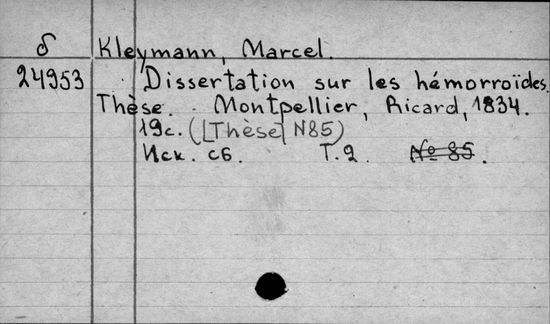 δ Kleymann, Marcel.
24953 Dissertation sur les hémorroïdes.
Thèse. Montpellier, Ricard, 1834.
19c. ([Thèse] N85)
Иск. сб. Т.2. № 85.